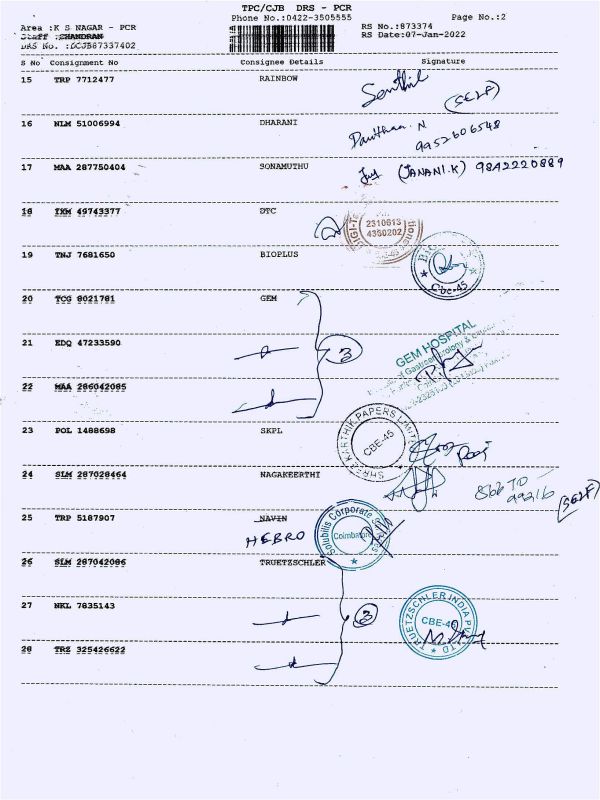 TPC/CJB DRS - PCR
Phone No.:0422-3505555 Page No.:2
Area :K S NAGAR - PCR RS No.:873374
Staff :CHANDRAN RS Date:07-Jan-2022
DRS No. :DCJB87337402
S No Consignment No Consignee Details Signature
15 TRP 7712477 RAINBOW Senthil (SELF)
16 NLM 51006994 DHARANI N 9952606548
17 MAA 287750404 SONAMUTHU (JANANI.K) 9842220889
18 IXM 49743377 DTC 2310613
4350202
19 TNJ 7681650 BIOPLUS Cbe-45
20 TCG 8021781 GEM
21 EDQ 47233590 3 GEM HOSPITAL
22 MAA 286042085
23 POL 1488698 SKPL SHREE KARTHIK PAPERS LIMITED CBE-45
24 SLM 287028464 NAGAKEERTHI 99216 (SELF)
25 TRP 5187907 NAVIN
HEBRO Solubilis Corporate Coimbatore
26 SLM 287042086 TRUETZSCHLER
27 NKL 7835143 3 TRUETZSCHLER INDIA PVT LTD CBE-45
28 TRZ 325426622